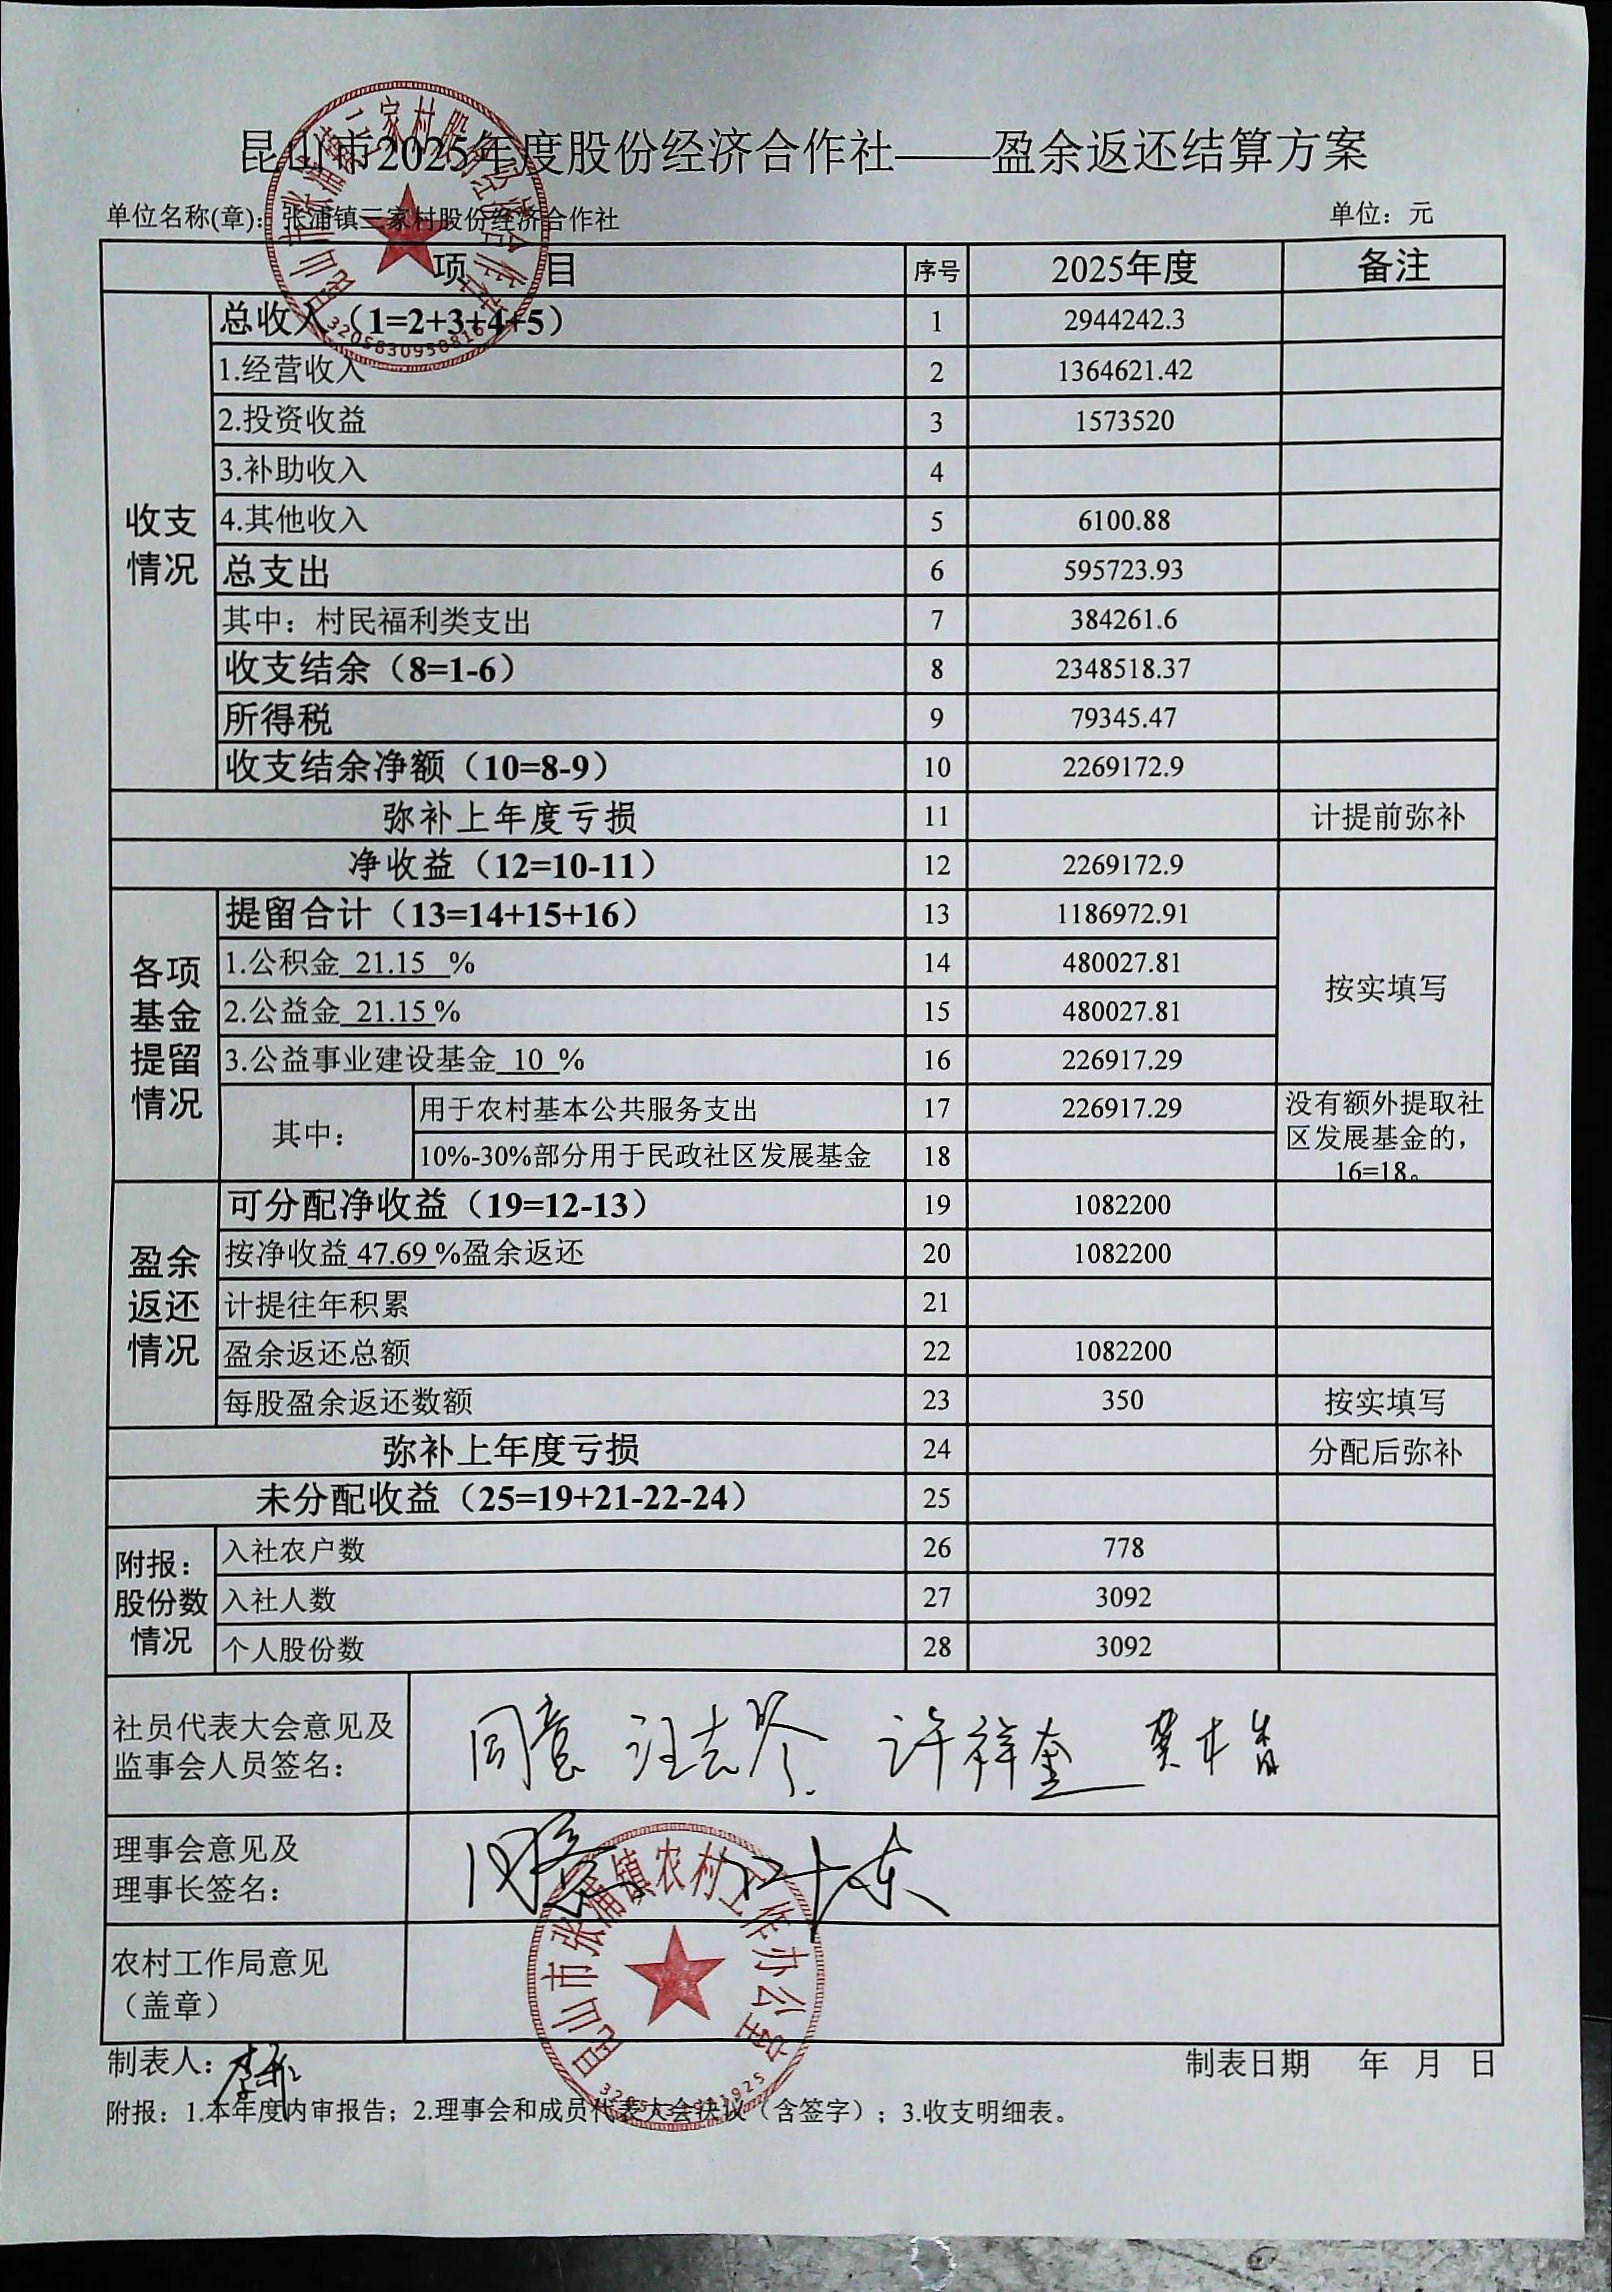 昆山市2025年度股份经济合作社——盈余返还结算方案
单位名称(章)：张浦镇三家村股份经济合作社 单位：元
项 目 序号 2025年度 备注
收支情况
总收入（1=2+3+4+5） 1 2944242.3
1.经营收入 2 1364621.42
2.投资收益 3 1573520
3.补助收入 4
4.其他收入 5 6100.88
总支出 6 595723.93
其中：村民福利类支出 7 384261.6
收支结余（8=1-6） 8 2348518.37
所得税 9 79345.47
收支结余净额（10=8-9） 10 2269172.9
弥补上年度亏损 11 计提前弥补
净收益（12=10-11） 12 2269172.9
各项基金提留情况
提留合计（13=14+15+16） 13 1186972.91
1.公积金 21.15 % 14 480027.81
2.公益金 21.15 % 15 480027.81
3.公益事业建设基金 10 % 16 226917.29
按实填写
其中：
用于农村基本公共服务支出 17 226917.29
10%-30%部分用于民政社区发展基金 18
没有额外提取社
区发展基金的，
16=18。
盈余返还情况
可分配净收益（19=12-13） 19 1082200
按净收益 47.69 %盈余返还 20 1082200
计提往年积累 21
盈余返还总额 22 1082200
每股盈余返还数额 23 350 按实填写
弥补上年度亏损 24 分配后弥补
未分配收益（25=19+21-22-24） 25
附报：股份数情况
入社农户数 26 778
入社人数 27 3092
个人股份数 28 3092
社员代表大会意见及
监事会人员签名： 同意 汪志琴 许祥奎
理事会意见及
理事长签名： 同意 叶东
农村工作局意见
（盖章）
昆山市张浦镇农村工作办公室
制表人： 制表日期 年 月 日
附报：1.本年度内审报告；2.理事会和成员代表大会决议（含签字）；3.收支明细表。
昆山市张浦镇三家村股份经济合作社
3205830950816